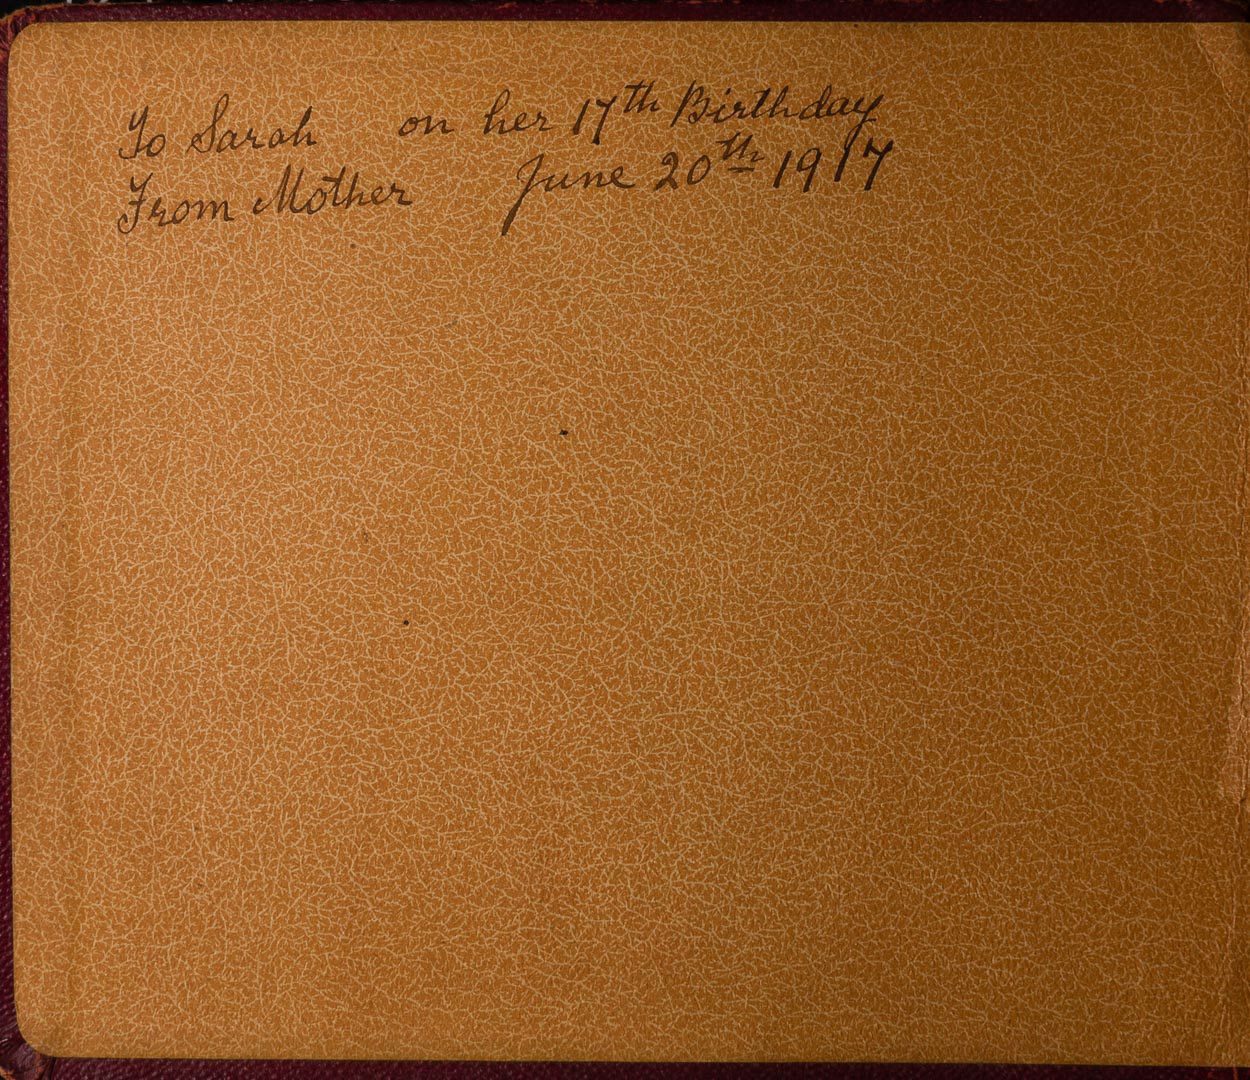 To Sarah on her 17th Birthday
From Mother June 20th 1917